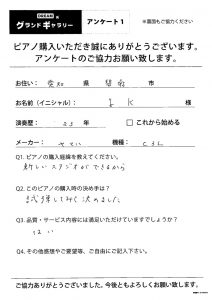 グランドギャラリー
アンケート1
※裏面もご協力ください
ピアノ購入いただき誠にありがとうございます。
アンケートのご協力お願い致します。
お住い: 愛知 県 市
お名前(イニシャル): I K 様
演奏歴: 23 年 □ これから始める
メーカー: ヤマハ 機種: C3L
Q1. ピアノの購入経緯を教えてください。
新しいスタジオができるから
Q2. このピアノの購入時の決め手は?
試弾してみて決めました
Q3. 品質・サービス内容には満足いただけていますでしょうか?
はい
Q4. その他感想やご要望等、ご自由にご記入下さい。
ご協力ありがとうございました。今後ともよろしくお願い致します。